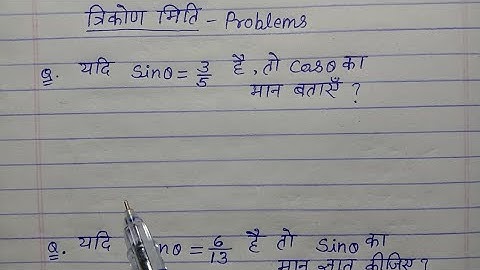 त्रिकोण मिति - Problems
Q. यदि sinθ = 3/5 है, तो cosθ का
मान बताएँ ?
Q. यदि inθ = 6/13 है तो sinθ का
मान ज्ञात कीजिए ?